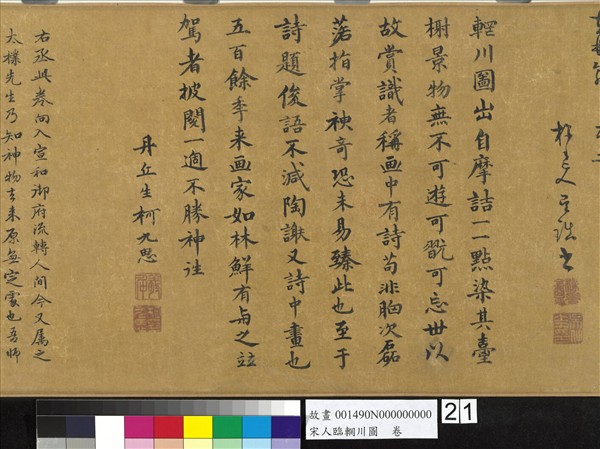 輞川圖出自摩詰一一點染其臺
榭景物無不可遊可翫可忘世以
故賞識者稱画中有詩苟非胸次磊
落指掌神奇恐未易臻此也至于
詩題俊語不減陶謝又詩中畫也
五百餘年来画家如林鮮有與之竝
駕者披閱一過不勝神往
丹丘生柯九思
右丞此卷向入宣和御府流轉人间今又屬之
太樸先生乃知神物去来原無定處也吾師
故畫 001490N000000000
宋人臨輞川圖 卷
21